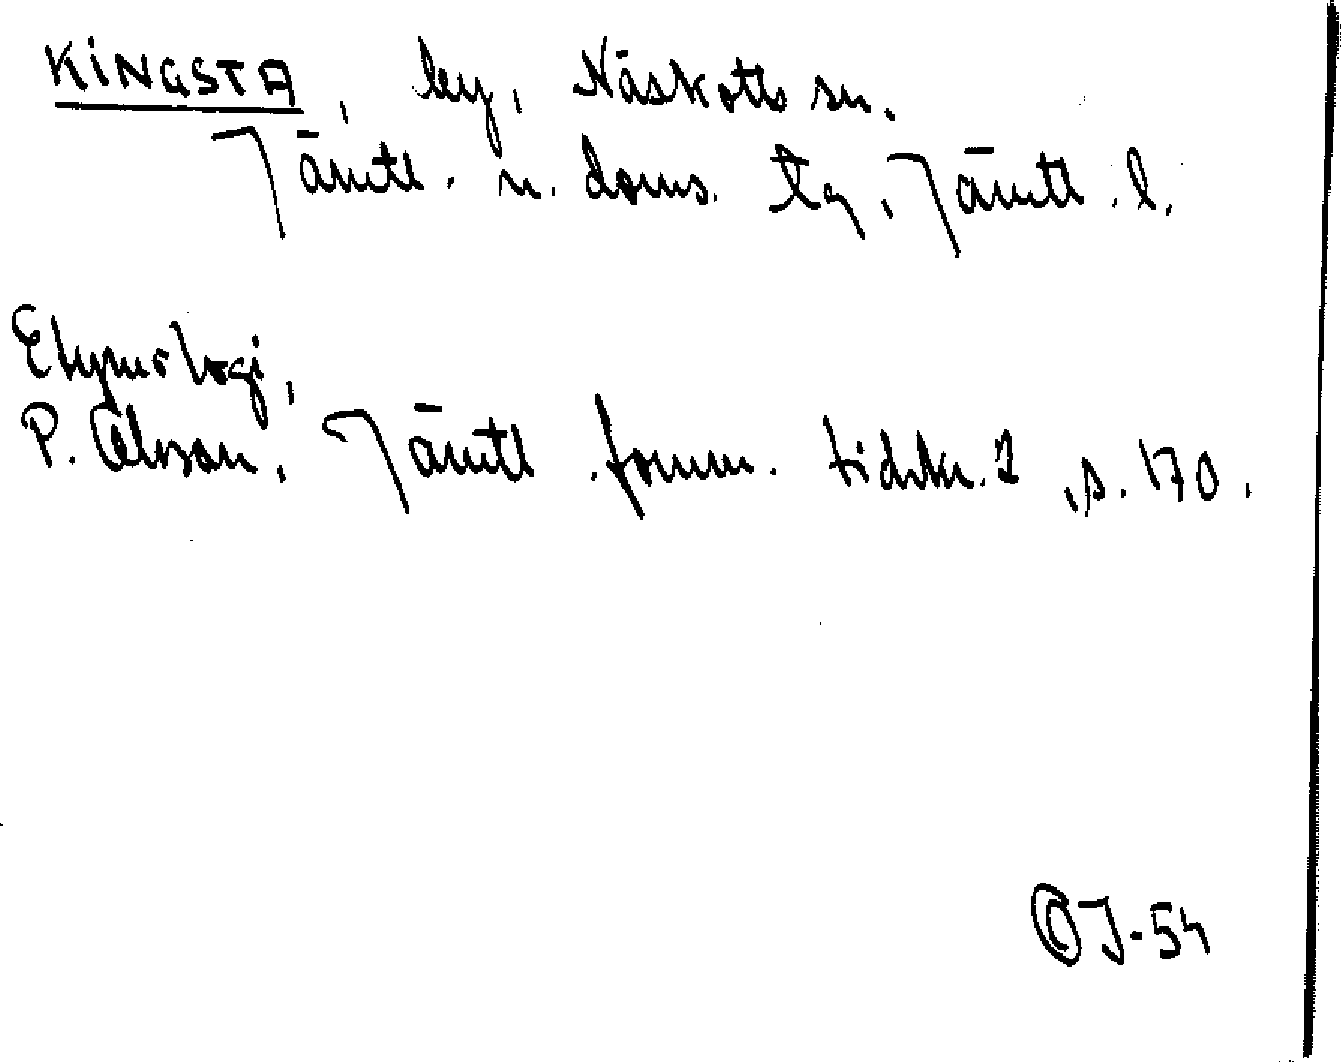 KINGSTA, by, Näskotts sn.
Jämtl. n. doms. tg, Jämtl. l.
Etymologi,
P. Olsson, Jämtl. fornm. tidskr. 2, s. 170.
©J-54